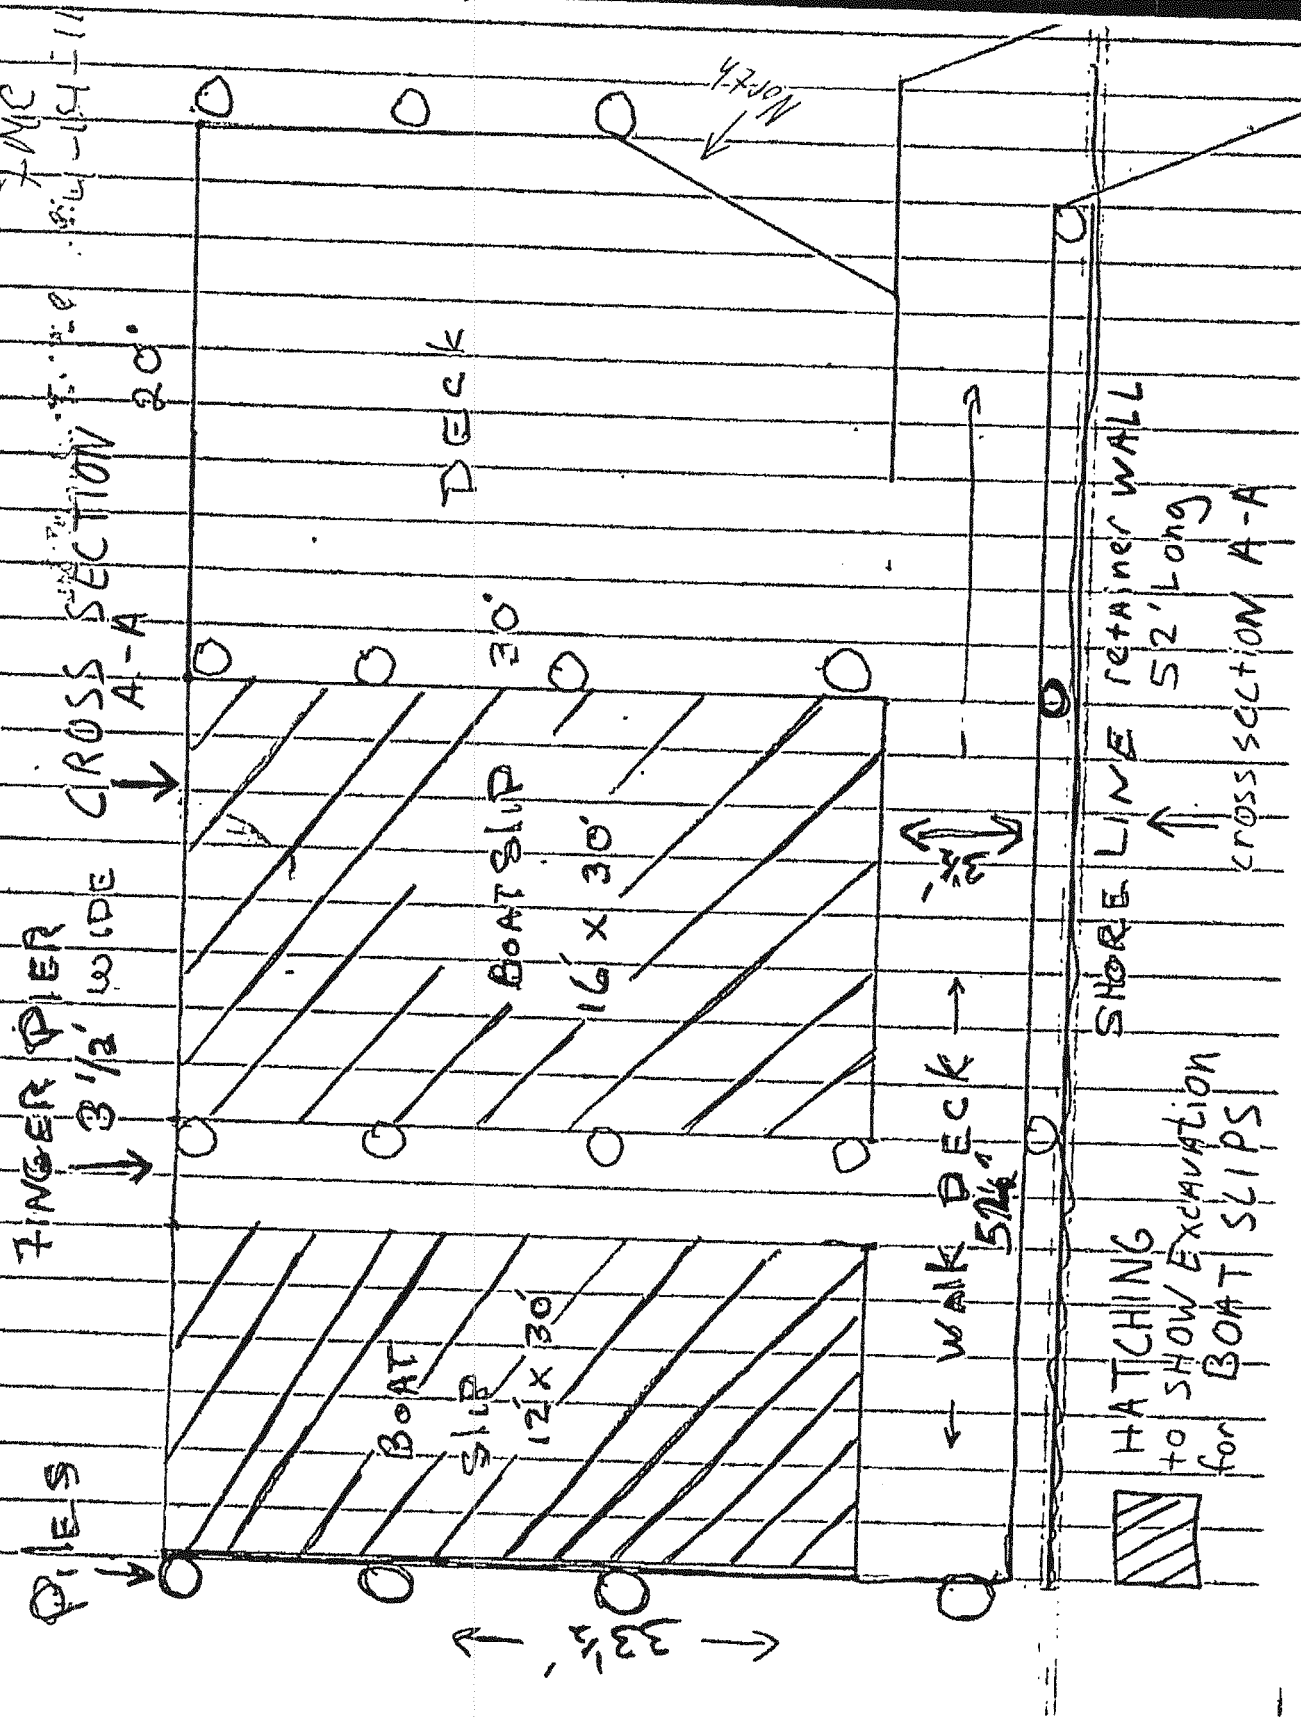 PilES
FINGER PIER
3 1/2' WIDE
CROSS SECTION
A-A
20'
BOAT
SLIP
12' x 30'
BOAT SLIP
16' x 30'
30'
DECK
North
33 1/2'
3 1/2'
← WALK DECK →
SHORE LINE retainer WALL
52' Long
cross section A-A
HATCHING
to SHOW Excavation
for BOAT SLIPS